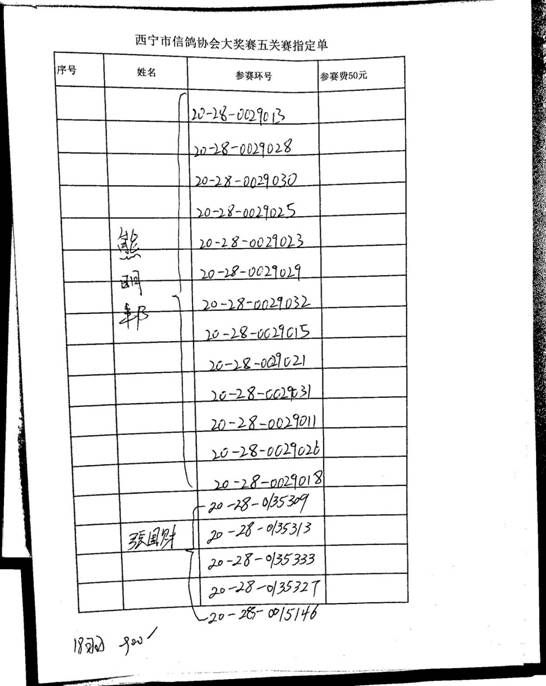 西宁市信鸽协会大奖赛五关赛指定单
序号 姓名 参赛环号 参赛费50元
20-28-0029013
20-28-0029028
20-28-0029030
20-28-0029025
熊 20-28-0029023
明 20-28-0029029
邦 20-28-0029032
20-28-0029015
20-28-0029021
20-28-0029031
20-28-0029011
20-28-0029026
20-28-0029018
20-28-0135309
張国财 20-28-0135313
20-28-0135333
20-28-0135327
20-28-0015146
18羽 900